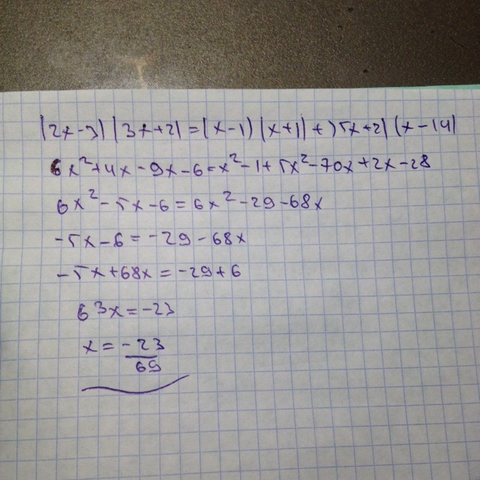 (2x-3)(3x+2)=(x-1)(x+1)+(5x+2)(x-14)
6x²+4x-9x-6=x²-1+5x²-70x+2x-28
6x²-5x-6=6x²-29-68x
-5x-6=-29-68x
-5x+68x=-29+6
63x=-23
x=-23/69